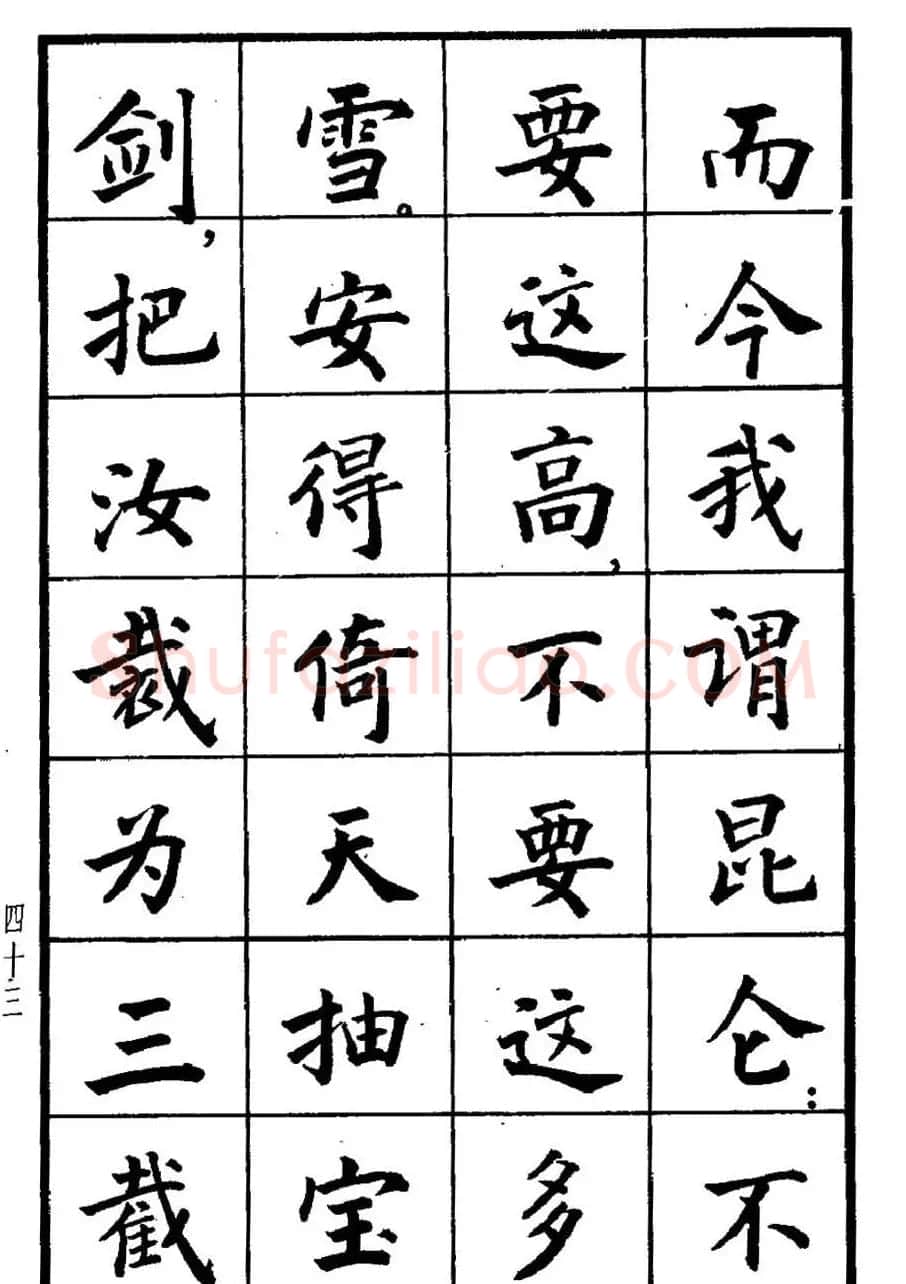 而今我谓昆仑：不
要这高，不要这多
雪。安得倚天抽宝
剑，把汝裁为三截
四十三
Shufaziliao.COM